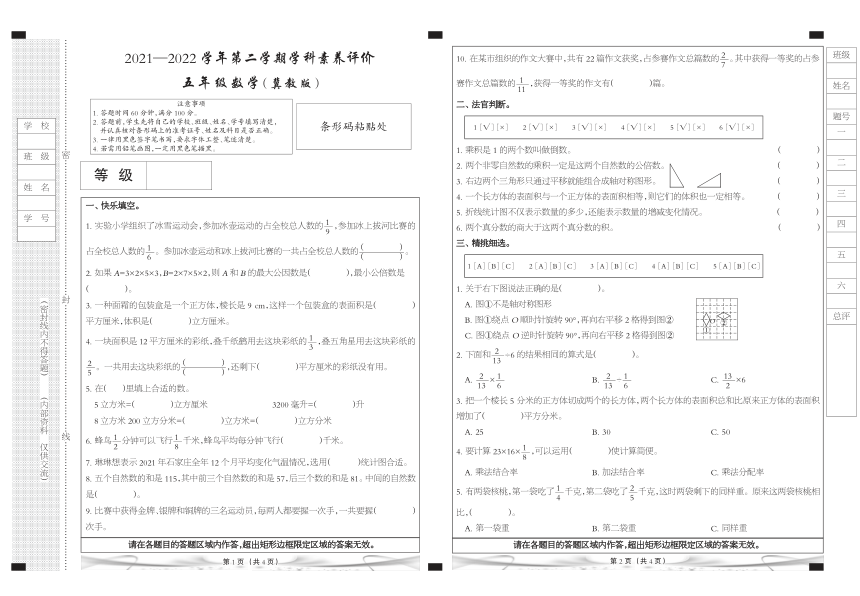 学 校
班 级
姓 名
学 号
密
封
线
（密封线内不得答题）
（内部资料 仅供交流）
2021—2022 学年第二学期学科素养评价
五年级数学（冀教版）
注意事项
1. 答题时间 60 分钟,满分 100 分。
2. 答题前,学生先将自己的学校、班级、姓名、学号填写清楚,
并认真核对条形码上的准考证号、姓名及科目是否正确。
3. 一律用黑色签字笔书写,要求字体工整、笔迹清楚。
4. 若需用铅笔画图,一定用黑色笔描黑。
条形码粘贴处
等 级
一、快乐填空。
1. 实验小学组织了冰雪运动会,参加冰壶运动的占全校总人数的 1/9 ,参加冰上拔河比赛的
占全校总人数的 1/6 。参加冰壶运动和冰上拔河比赛的一共占全校总人数的 (  )/(  ) 。
2. 如果 A=3×2×5×3,B=2×7×5×2,则 A 和 B 的最大公因数是(  ),最小公倍数是
(  )。
3. 一种面霜的包装盒是一个正方体,棱长是 9 cm,这样一个包装盒的表面积是(  )
平方厘米,体积是(  )立方厘米。
4. 一块面积是 12 平方厘米的彩纸,叠千纸鹤用去这块彩纸的 1/3 ,叠五角星用去这块彩纸的
2/5 。一共用去这块彩纸的 (  )/(  ) ,还剩下(  )平方厘米的彩纸没有用。
5. 在(  )里填上合适的数。
5 立方米=(  )立方厘米 3200 毫升=(  )升
8 立方米 200 立方分米=(  )立方米=(  )立方分米
6. 蜂鸟 1/2 分钟可以飞行 1/8 千米,蜂鸟平均每分钟飞行(  )千米。
7. 琳琳想表示 2021 年石家庄全年 12 个月平均变化气温情况,选用(  )统计图合适。
8. 五个自然数的和是 115,其中前三个自然数的和是 57,后三个数的和是 81。中间的自然数
是(  )。
9. 比赛中获得金牌、银牌和铜牌的三名运动员,每两人都要握一次手,一共要握(  )
次手。
请在各题目的答题区域内作答,超出矩形边框限定区域的答案无效。
第 1 页（共 4 页）
10. 在某市组织的作文大赛中,共有 22 篇作文获奖,占参赛作文总篇数的 2/7 。其中获得一等奖的占参
赛作文总篇数的 1/11 ,获得一等奖的作文有(  )篇。
二、法官判断。
1［√］［×］ 2［√］［×］ 3［√］［×］ 4［√］［×］ 5［√］［×］ 6［√］［×］
1. 乘积是 1 的两个数叫做倒数。 (  )
2. 两个非零自然数的乘积一定是这两个自然数的公倍数。 (  )
3. 右边两个三角形只通过平移就能组合成轴对称图形。 (  )
4. 一个长方体的表面积与一个正方体的表面积相等,则它们的体积也一定相等。 (  )
5. 折线统计图不仅表示数量的多少,还能表示数量的增减变化情况。 (  )
6. 两个真分数的商大于这两个真分数的积。 (  )
三、精挑细选。
1［A］［B］［C］ 2［A］［B］［C］ 3［A］［B］［C］ 4［A］［B］［C］ 5［A］［B］［C］
1. 关于右下图说法正确的是(  )。
A. 图①不是轴对称图形
B. 图①绕点 O 顺时针旋转 90°,再向右平移 2 格得到图②
C. 图①绕点 O 逆时针旋转 90°,再向右平移 2 格得到图②
O
①
②
2. 下面和 2/13 ÷6 的结果相同的算式是(  )。
A. 2/13 × 1/6 B. 2/13 ÷ 1/6 C. 13/2 ×6
3. 把一个棱长 5 分米的正方体切成两个的长方体,两个长方体的表面积总和比原来正方体的表面积
增加了(  )平方分米。
A. 25 B. 30 C. 50
4. 要计算 23×16× 1/8 ,可以运用(  )使计算简便。
A. 乘法结合率 B. 加法结合率 C. 乘法分配率
5. 有两袋核桃,第一袋吃了 1/4 千克,第二袋吃了 2/5 千克,这时两袋剩下的同样重。原来这两袋核桃相
比,(  )。
A. 第一袋重 B. 第二袋重 C. 同样重
请在各题目的答题区域内作答,超出矩形边框限定区域的答案无效。
第 2 页（共 4 页）
班级
姓名
题号
一
二
三
四
五
六
总评